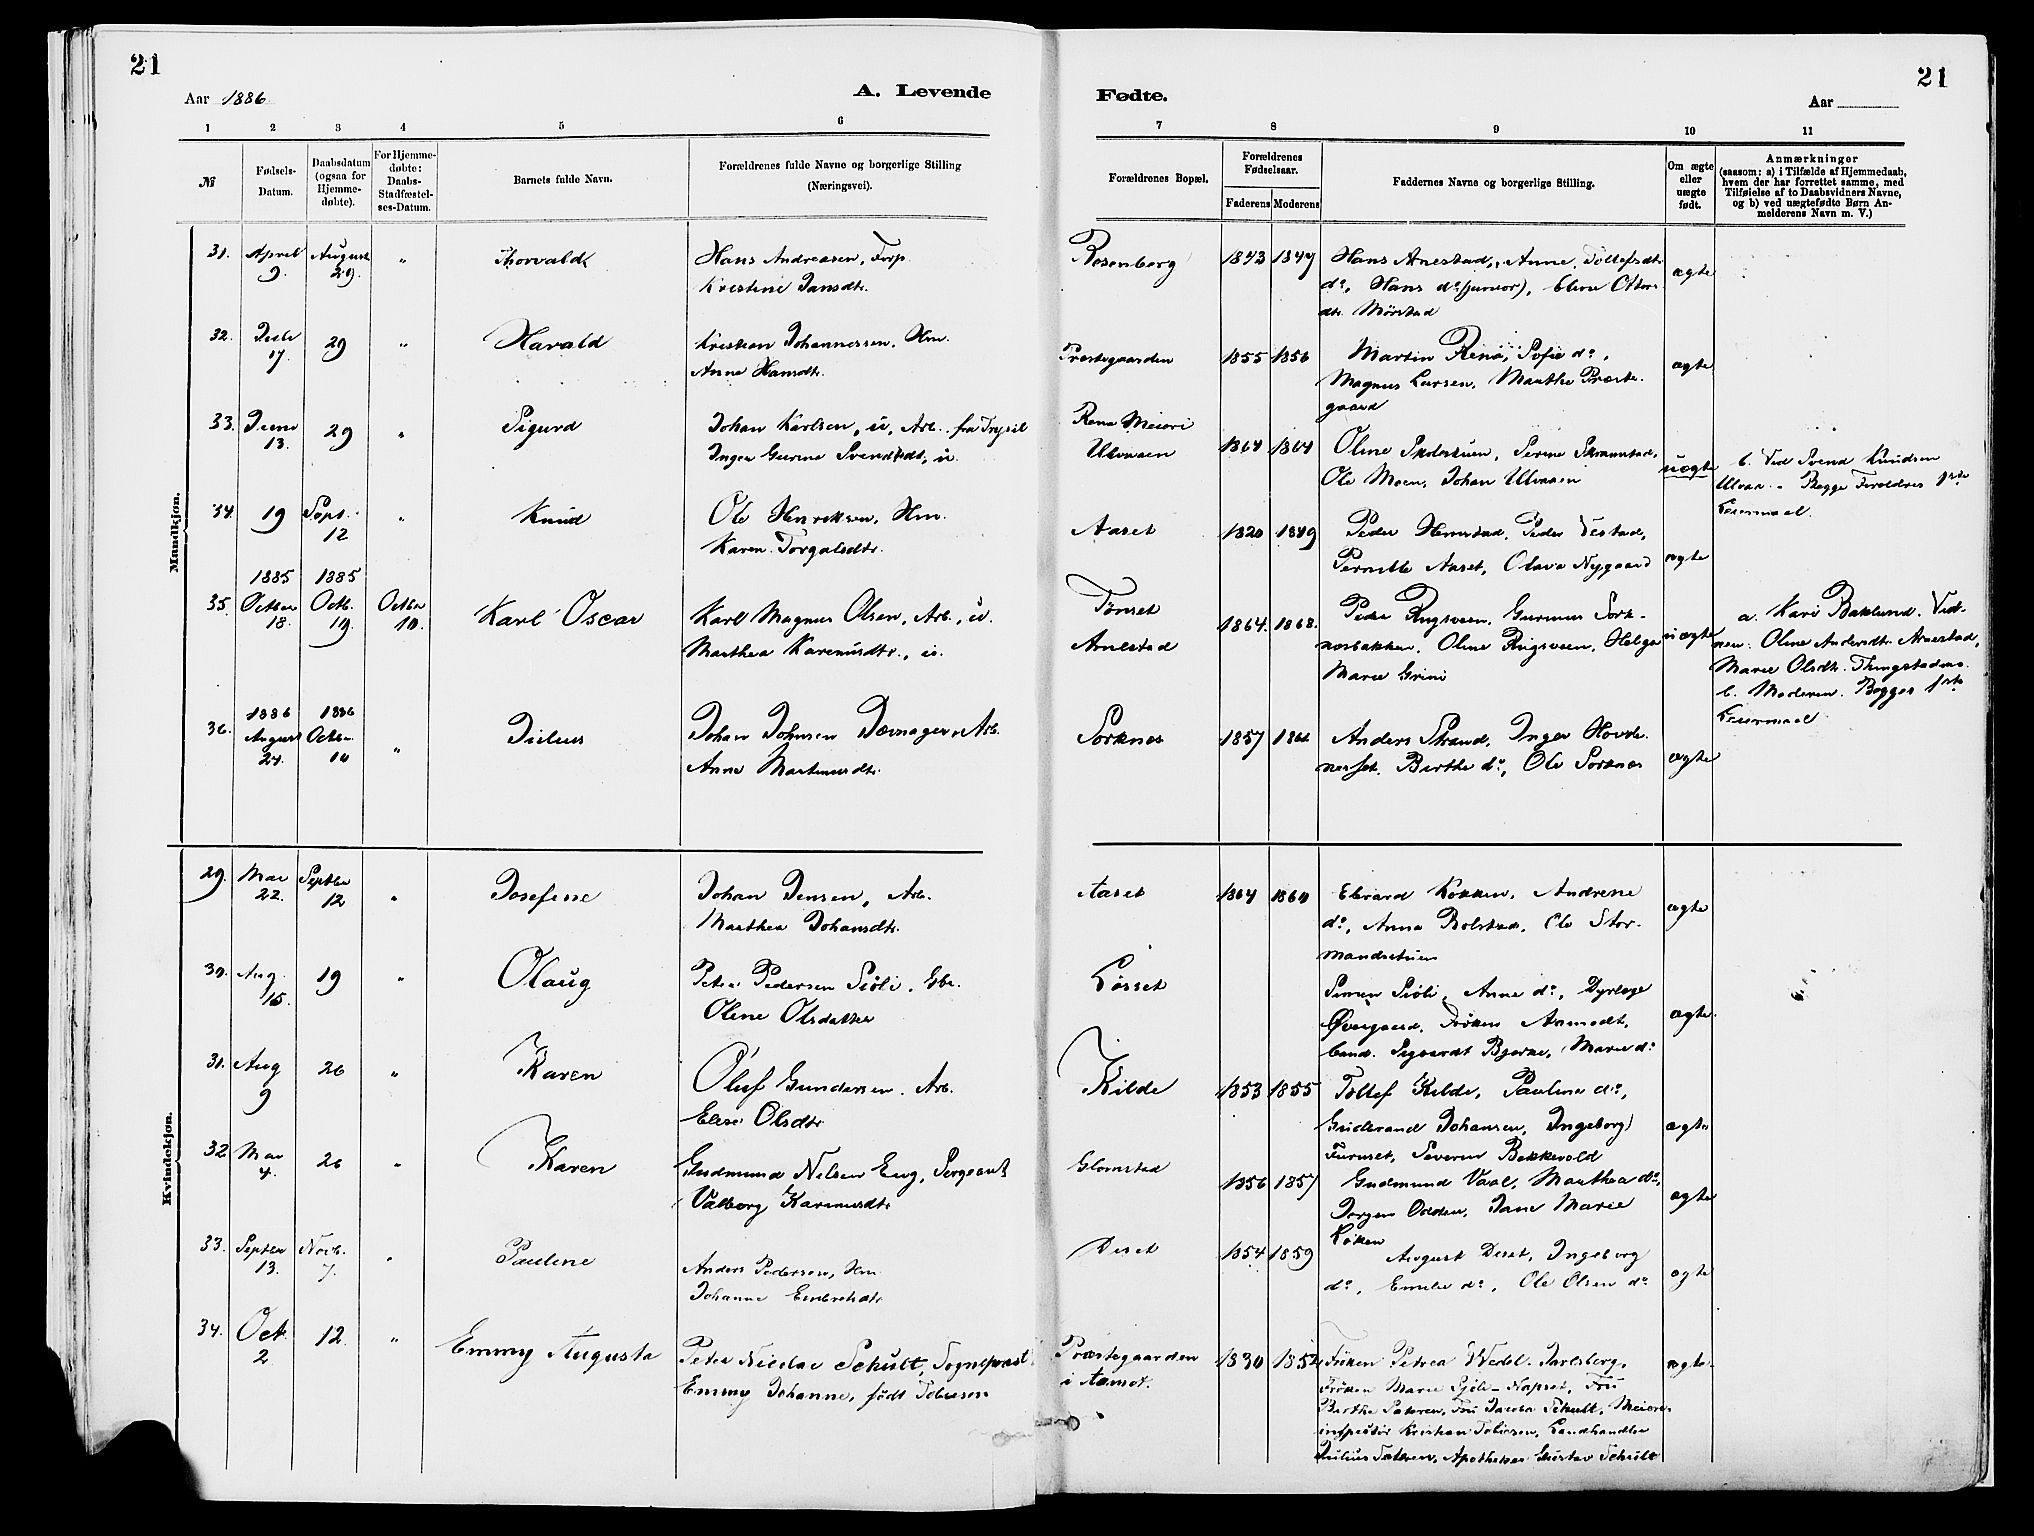 21
Aar 1886
A. Levende
1 2 3 4 5 6
№
Fødsels-Datum.
Daabsdatum (ogsaa for Hjemme-døbte).
For Hjemme-døbte: Daabs-Stadfæstel-ses-Datum.
Barnets fulde Navn.
Forældrenes fulde Navne og borgerlige Stilling (Næringsvei).
Mandkjøn.
31. April 9. August 29. „ Thorvald Hans Andreasen, Forp.
Kristine Jansdtr.
32. Juli 17. 29 „ Harald Kristian Johannessen, Hm.
Anne Hansdtr.
33. Juni 13. 29 „ Sigurd Johan Karlsen, u, Arb. fra Trysil
Inger Gurine Svendsdt, u.
34. 19 Sept. 12 „ Knud Ole Henriksen, Hm.
Karen Torgalsdtr.
1885 1885
35. Octber 18. Octb. 19. Octbr 19. Karl Oscar Karl Magnus Olsen, Arb., u.
Marthea Karenusdtr., u.
1886 1886
36. August 24. Octbr. 10 „ Julius Johan Johnsen Arb.
Anne Martinusdtr.
Kvindekjøn.
29. Mai 22. Septbr 12 „ Josefine Johan Jensen, Arb.
Marthea Johansdtr.
30. Aug. 15. 19 „ Olaug Peter Pedersen Sjøli, Gbr.
Oline Olsdatter
31. Aug 9 26 „ Karen Oluf Gundersen, Arb.
Elise Olsdtr
32. Mai 4. 26 „ Karen Gudmund Nilsen Eng, Sergeant
Valborg Karenusdtr
33. Septbr 13. Novb. 7. „ Pauline Anders Pedersen, Hm.
Johanne Embretsdtr
34. Oct. 2 12. „ Emmy Augusta Peter Nicolai Schult, Sognepræst
Emmy Johanne, født Tobiesen
Fødte.
21
Aar
7 8 9 10 11
Forældrenes Bopæl.
Forældrenes Fødselsaar.
Faderens Moderens
Faddernes Navne og borgerlige Stilling.
Om ægte eller uægte født.
Anmærkninger
(saasom: a) i Tilfælde af Hjemmedaab, hvem der har forrettet samme, med Tilføielse af to Daabsvidners Navne, og b) ved uægtefødte Børn An-melderens Navn m. V.)
Rosenborg 1843 1847 Hans Arnestad, Anne Tollefsdtr
do, Hans do (junior), Eline Ottos-
dtr. Mørstad ægte
Præstegaarden 1855 1856 Martin Rena, Sofie do,
Magnus Larsen, Marthe Præste-
gaard ægte
Rena Meieri
Ulvaaen 1864 1864 Oline Skolestuen, Serine Skramstad,
Ole Moen, Johan Ulvaaen uægte
b. Ved Svend Knudsen
Ulvaa. Begge Forældres 1ste
Leiermaal.
Aaset 1820 1849 Peder Hemstad, Peder Vestad,
Pernille Aaset, Olava Nygaard ægte
Tønset
Arnestad 1864. 1868. Peder Ringsveen, Gurinus Sork-
næsbakken, Oline Ringsveen, Helga
Marie Grini uægte
a. Kari Baklund. Vid-
ner. Oline Andersdtr. Arnestad,
Marie Olsdtr. Thingstadens.
b. Moderen. Begges 1ste
Leiermaal.
Sorknes 1857 Anders Strand, Inger Hovde-
næsset, Berthe do, Ole Sorknes ægte
Aaset 1864 1860 Edvard Kokken, Andrine
do, Anna Bolstad, Ole Stor-
mandsstuen ægte
Løsset Simen Sjøli, Anne do, Dyrlæge
Øvergaard, Frøken Aamodt,
cand. Sigvardt Bjerke, Marie do ægte.
Kilde 1853 1855 Tollef Kilde, Pauline do,
Gudbrand Johansen, Ingeborg
Furuset, Severin Bekkevold ægte
Glomstad 1856 1857 Gudmund Vaal, Marthea do,
Jørgen Odden, Jane Marie
Køken ægte
Deset 1854 1859 August Deset, Ingeborg
do, Emilie do, Ole Olsen do ægte
Præstegaarden
i Aamot. 1830 1852 Frøken Petrea Wedel-Jarlsberg,
Frøken Marie Fru
Berthe Sætren, Fru Jacoba Schult, Meieri-
inspektør Kristian Tobiesen, Landhandler
Julius Sætren, Apotheker Gustav Schult ægte